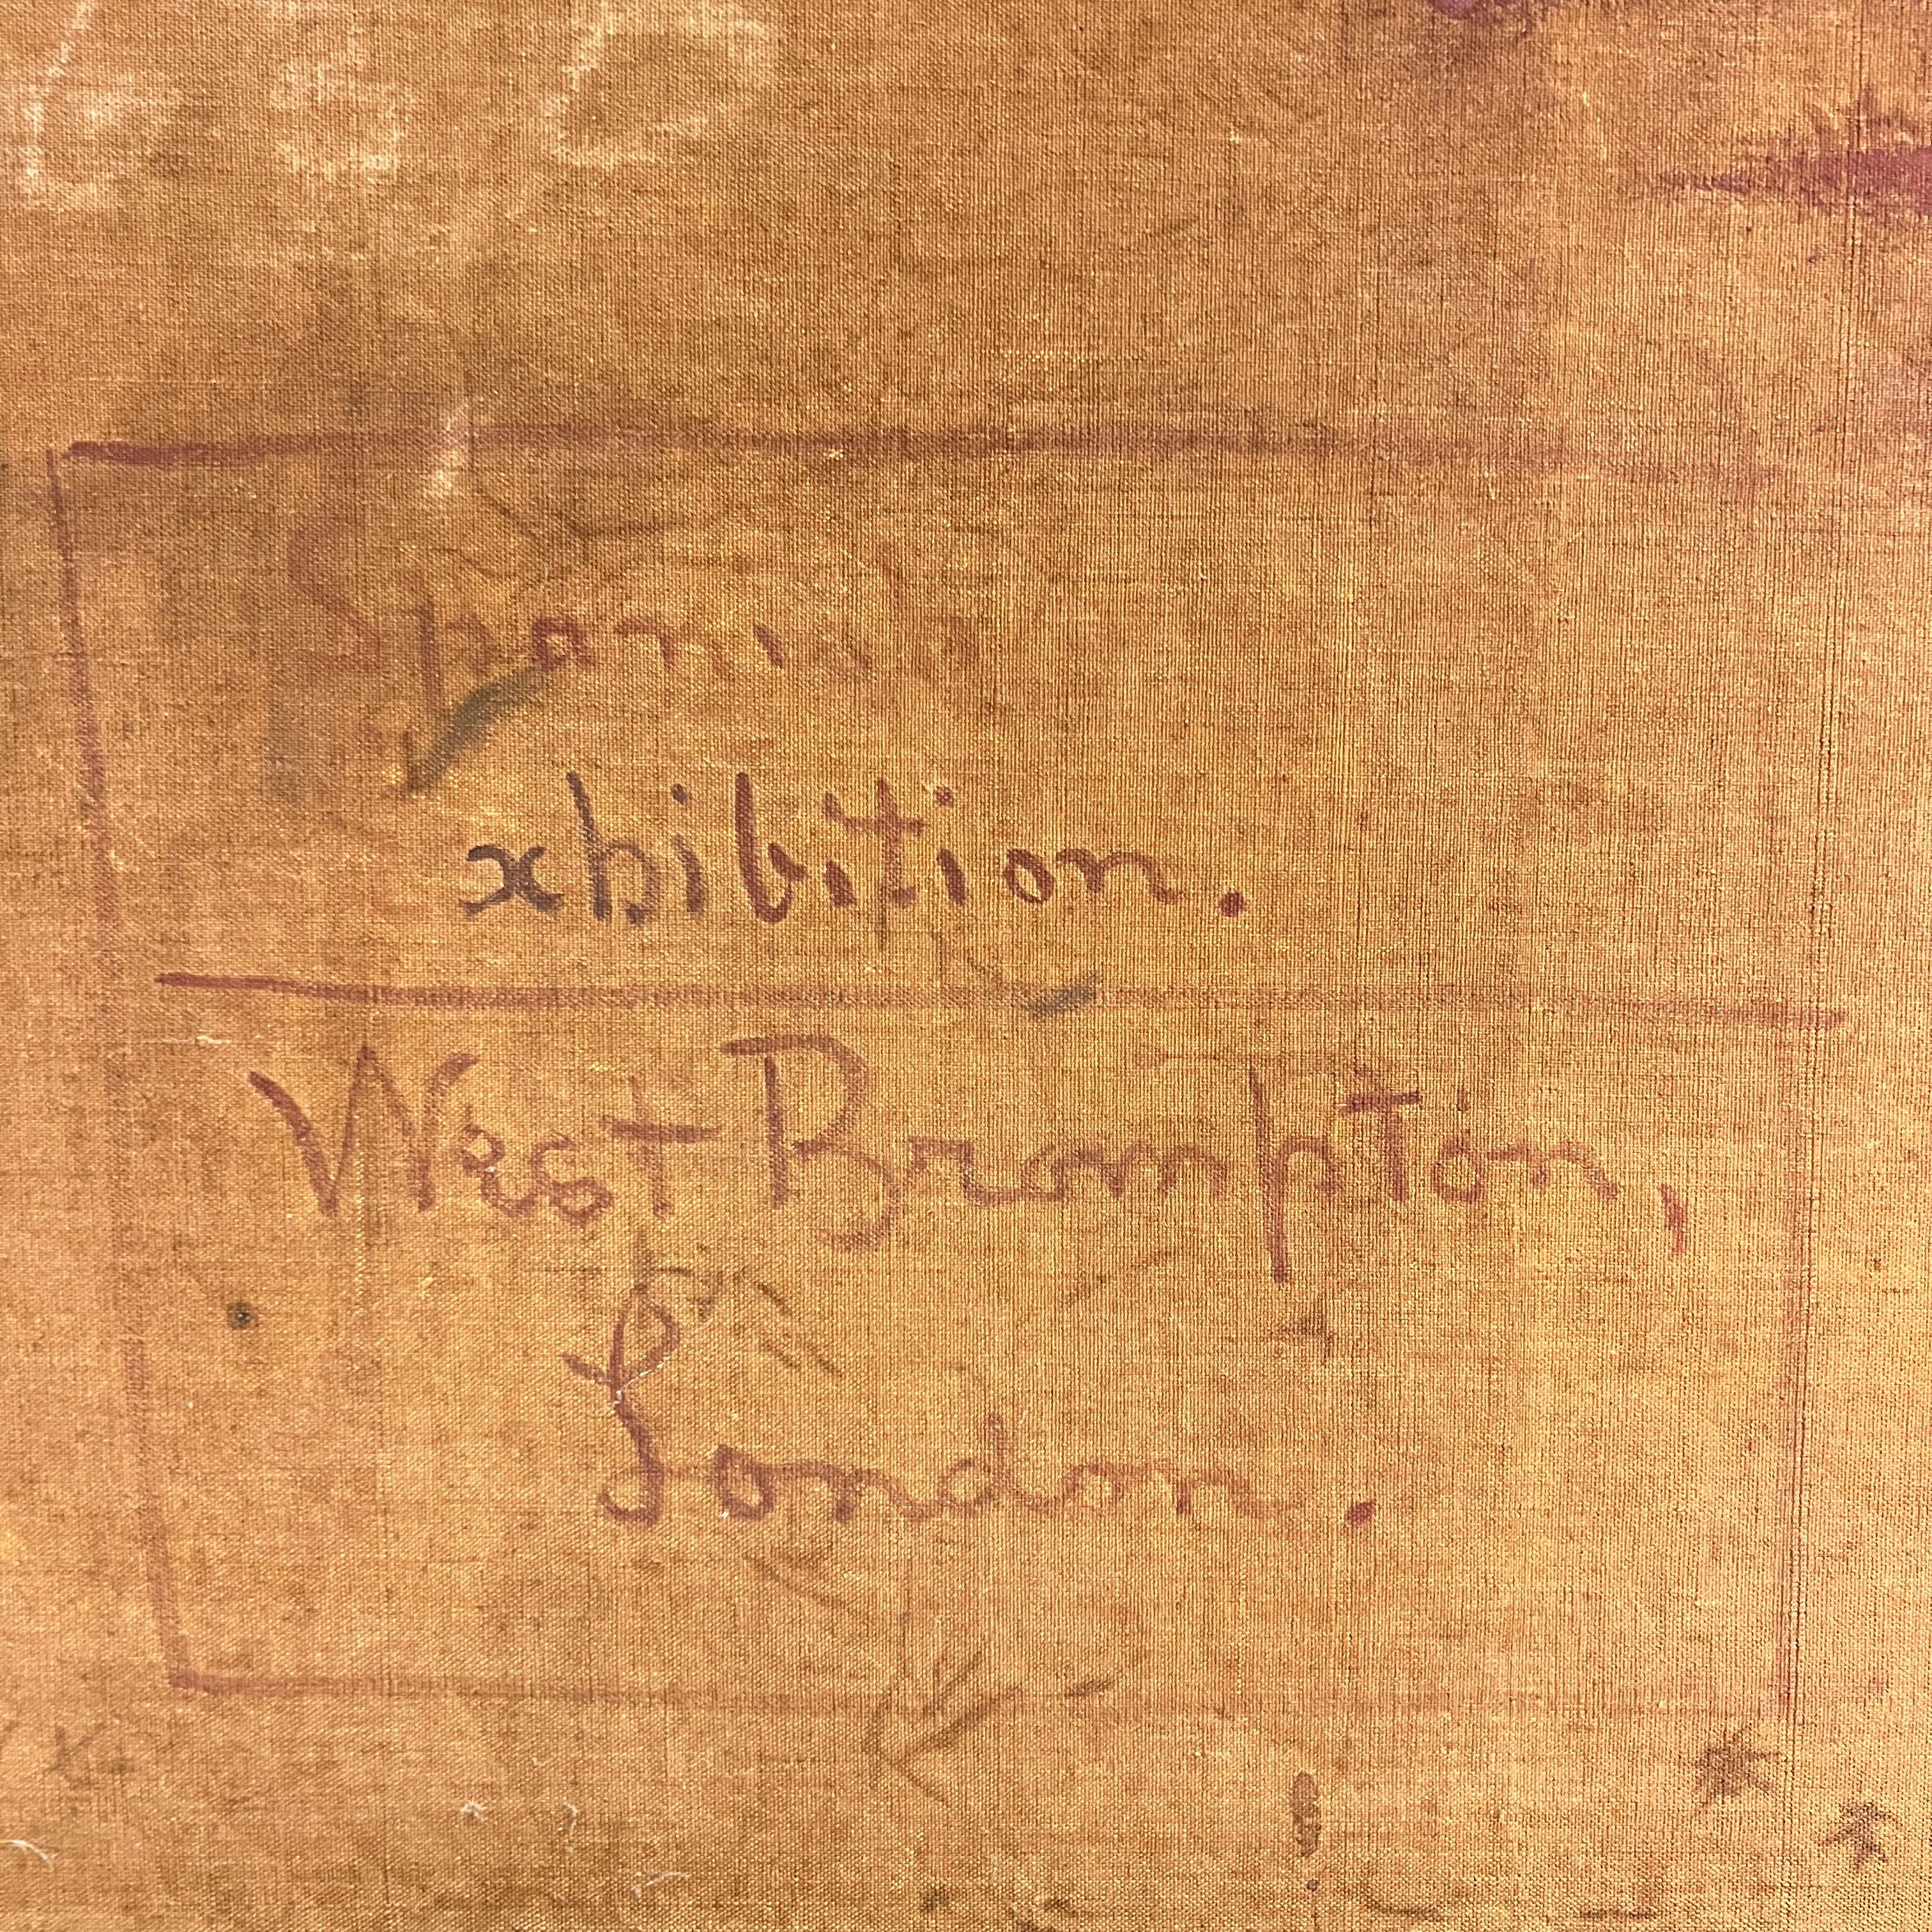 Spanish
xhibition.
West Brompton,
London.